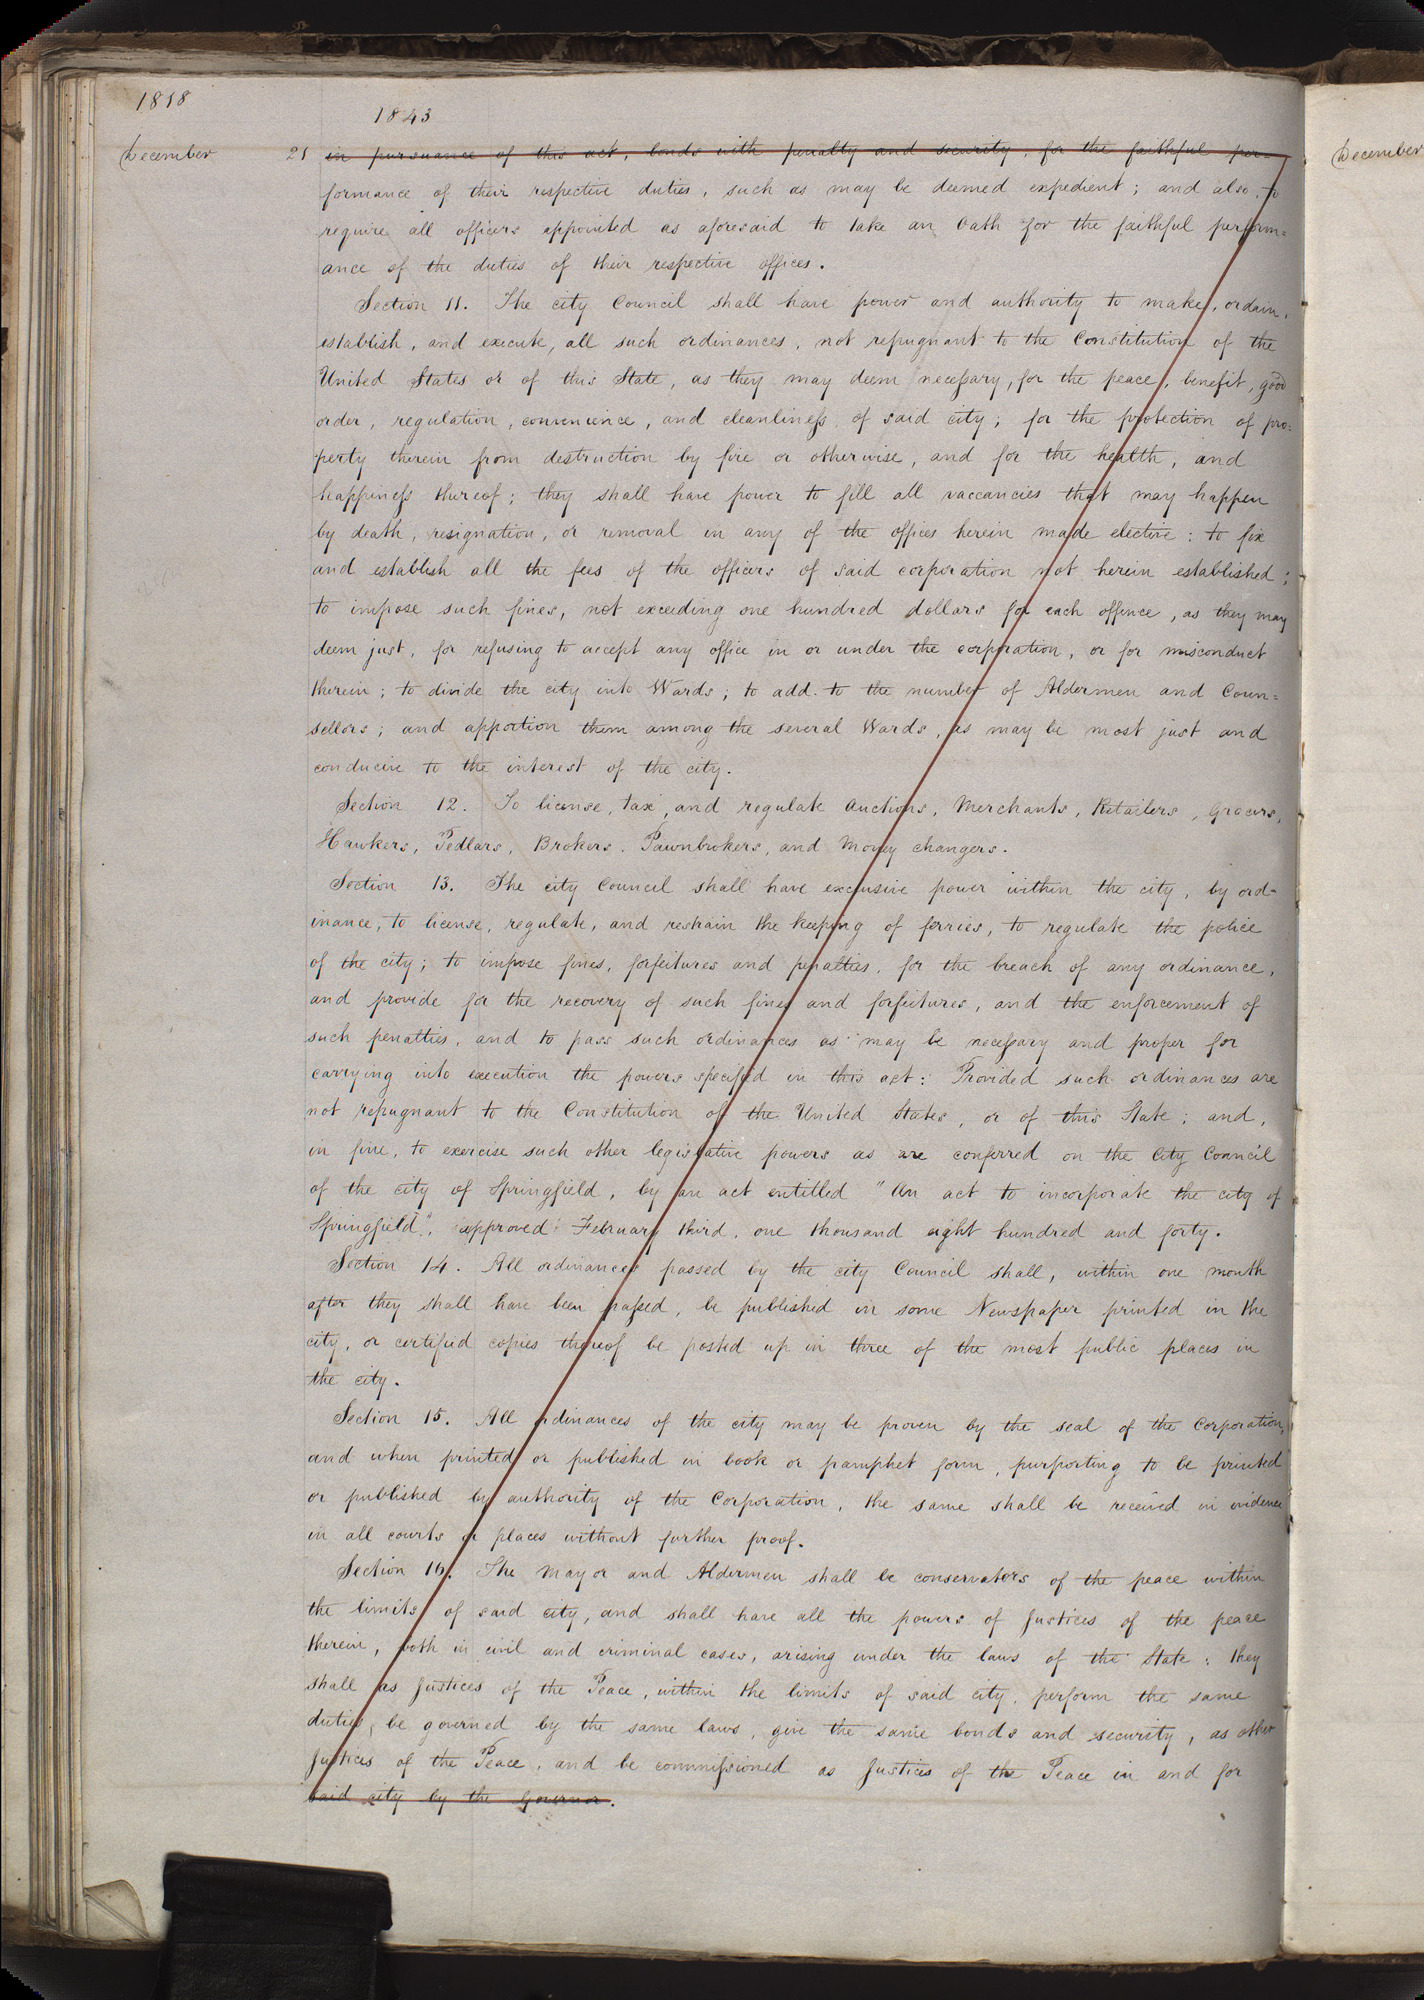 1818
1843
December 21 in pursuance of this act, bonds with penalty and security, for the faithful per-
formance of their respective duties, such as may be deemed expedient; and also, to
require all officers appointed as aforesaid to take an oath for the faithful perform=
ance of the duties of their respective offices.
Section 11. The city Council shall have power and authority to make, ordain,
establish, and execute, all such ordinances, not repugnant to the Constitution of the
United States or of this State, as they may deem necessary, for the peace, benefit, good
order, regulation, convenience, and cleanliness, of said city; for the protection of pro=
perty therein from destruction by fire or otherwise, and for the health, and
happiness thereof; they shall have power to fill all vaccancies that may happen
by death, resignation, or removal in any of the offices herein made elective: to fix
and establish all the fees of the officers of said corporation not herein established;
to impose such fines, not exceeding one hundred dollars for each offence, as they may
deem just, for refusing to accept any office in or under the corporation, or for misconduct
therein; to divide the city into Wards; to add to the number of Aldermen and Coun=
sellors; and apportion them among the several Wards, as may be most just and
conducive to the interest of the city.
Section 12. To license, tax, and regulate auctions, Merchants, Retailers, Grocers,
Hawkers, Pedlars, Brokers, Pawnbrokers, and Money changers.
Section 13. The city Council shall have exclusive power within the city, by ord-
inance, to license, regulate, and restrain the keeping of ferries, to regulate the police
of the city; to impose fines, forfeitures and penalties, for the breach of any ordinance,
and provide for the recovery of such fines and forfeitures, and the enforcement of
such penalties, and to pass such ordinances as may be necessary and proper for
carrying into execution the powers specified in this act: Provided such ordinances are
not repugnant to the Constitution of the United States, or of this State; and,
in fine, to exercise such other legislative powers as are conferred on the City Council
of the city of Springfield, by an act entitled "An act to incorporate the city of
Springfield", approved February third, one thousand eight hundred and forty.
Section 14. All ordinances passed by the city Council shall, within one month
after they shall have been passed, be published in some Newspaper printed in the
city, or certified copies thereof be posted up in three of the most public places in
the city.
Section 15. All ordinances of the city may be proven by the seal of the Corporation,
and when printed or published in book or pamphet form, purporting to be printed
or published by authority of the Corporation, the same shall be received in evidence
in all courts or places without further proof.
Section 16. The Mayor and Aldermen shall be conservators of the peace within
the limits of said city, and shall have all the powers of Justices of the peace
therein, both in civil and criminal cases, arising under the laws of the State: they
shall as Justices of the Peace, within the limits of said city, perform the same
duties, be governed by the same laws, give the same bonds and security, as other
Justices of the Peace, and be commissioned as Justices of the Peace in and for
said city by the Governor.
December